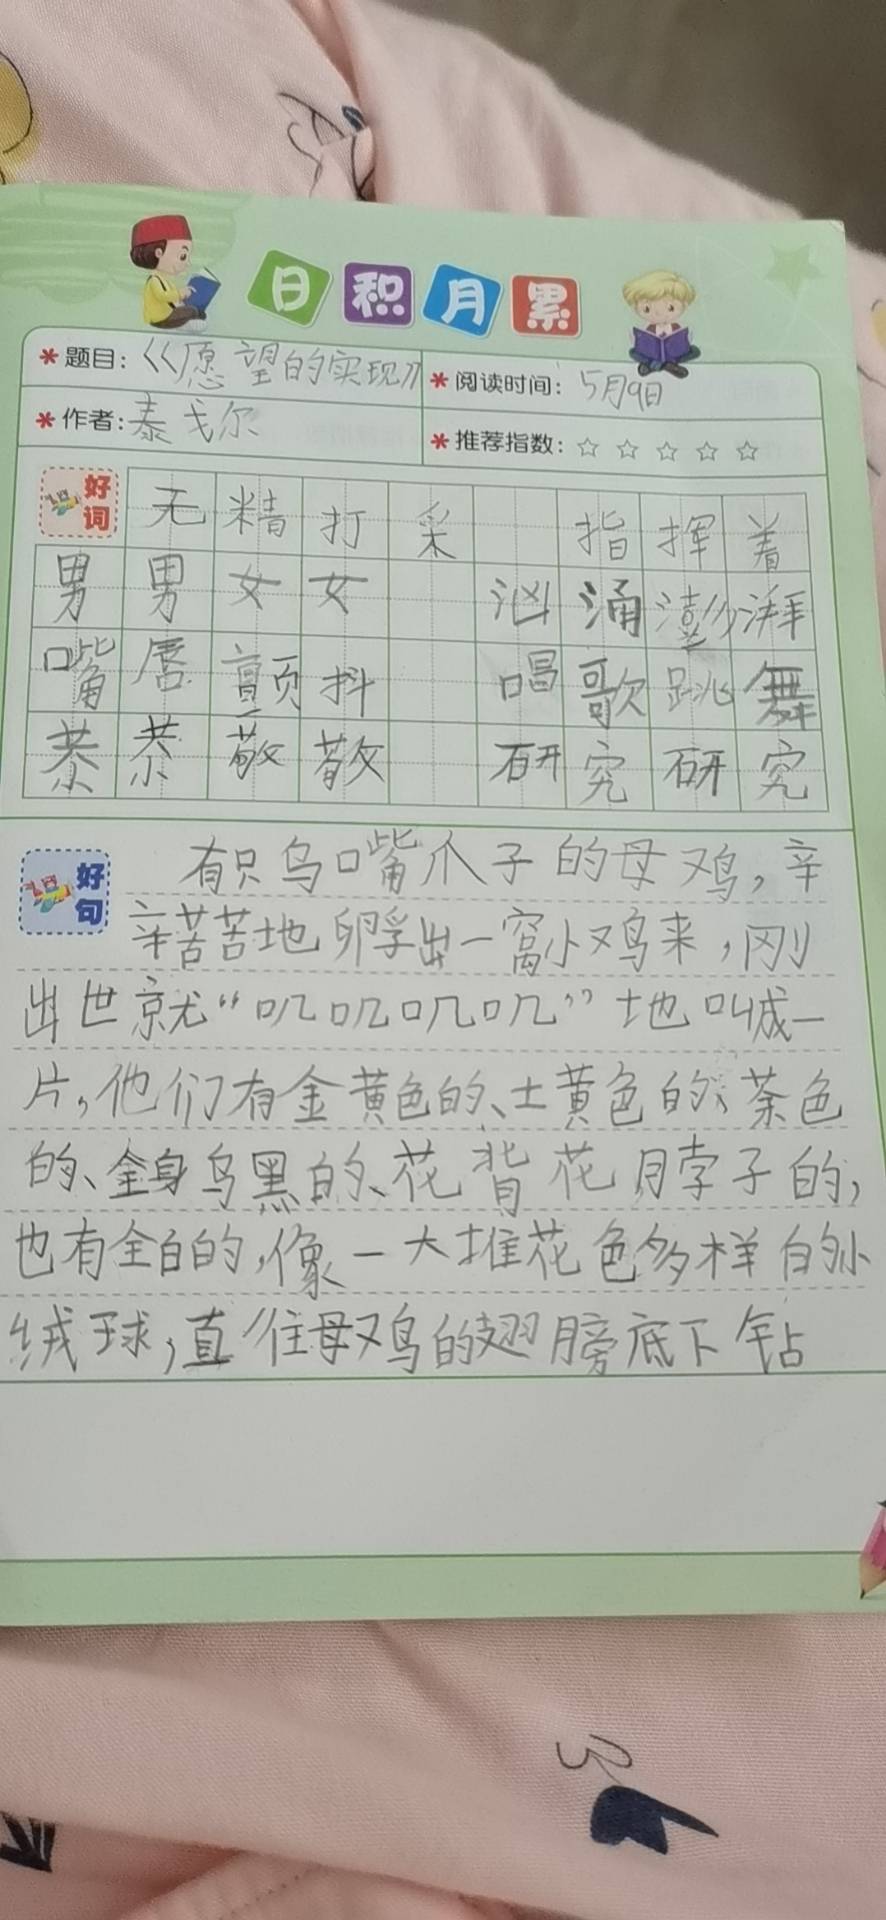 日积月累
题目：《愿望的实现》
阅读时间：5月9日
作者：泰戈尔
推荐指数：☆ ☆ ☆ ☆ ☆
好词
无精打采 指挥着
男男女女 汹涌澎湃
嘴唇颤抖 唱歌跳舞
恭恭敬敬 研究研究
好句
有只乌嘴爪子的母鸡，辛
辛苦苦地孵出一窝小鸡来，刚
出世就“叽叽叽叽”地叫成一
片，他们有金黄色的、土黄色的、茶色
的、全身乌黑的、花背花脖子的，
也有全白的，像一大堆花色多样的小
绒球，直往母鸡的翅膀底下钻